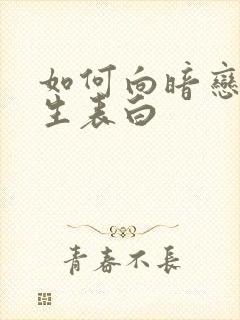 如何向暗戀
生表白
青春不長